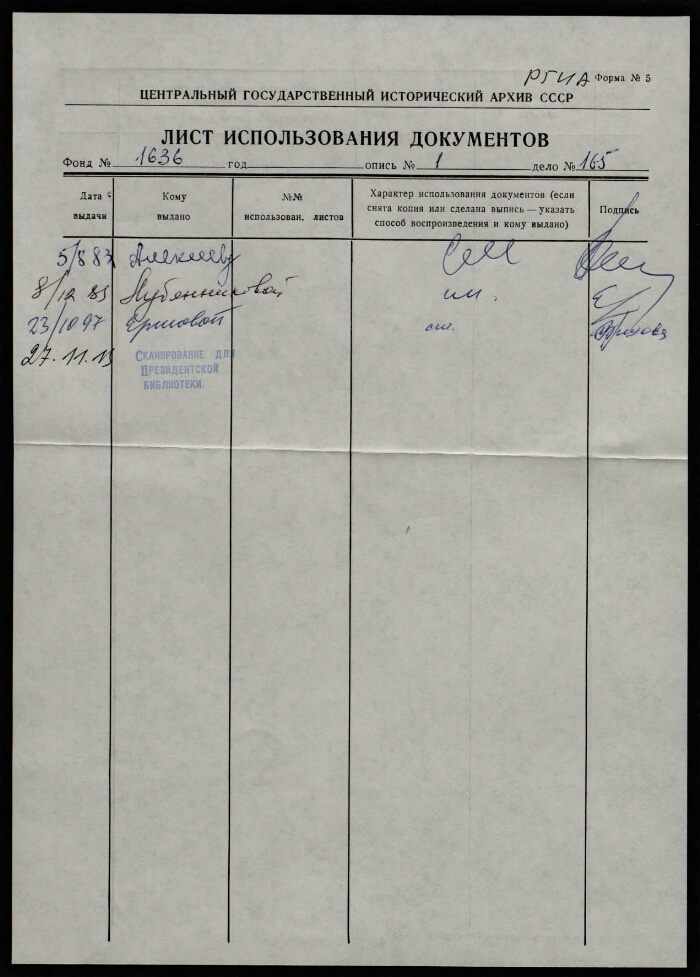 РГИА Форма № 5
ЦЕНТРАЛЬНЫЙ ГОСУДАРСТВЕННЫЙ ИСТОРИЧЕСКИЙ АРХИВ СССР
ЛИСТ ИСПОЛЬЗОВАНИЯ ДОКУМЕНТОВ
Фонд № 1636 год опись № 1 дело № 165
Дата выдачи
Кому выдано
№№ использован. листов
Характер использования документов (если
снята копия или сделана выпись — указать
способ воспроизведения и кому выдано)
Подпись
5/8 83 Алексееву
8/12 83 Лубенниковой
23/10 97 Ершовой
27.11.
СКАНИРОВАНИЕ ДЛЯ
ПРЕЗИДЕНТСКОЙ
БИБЛИОТЕКИ.